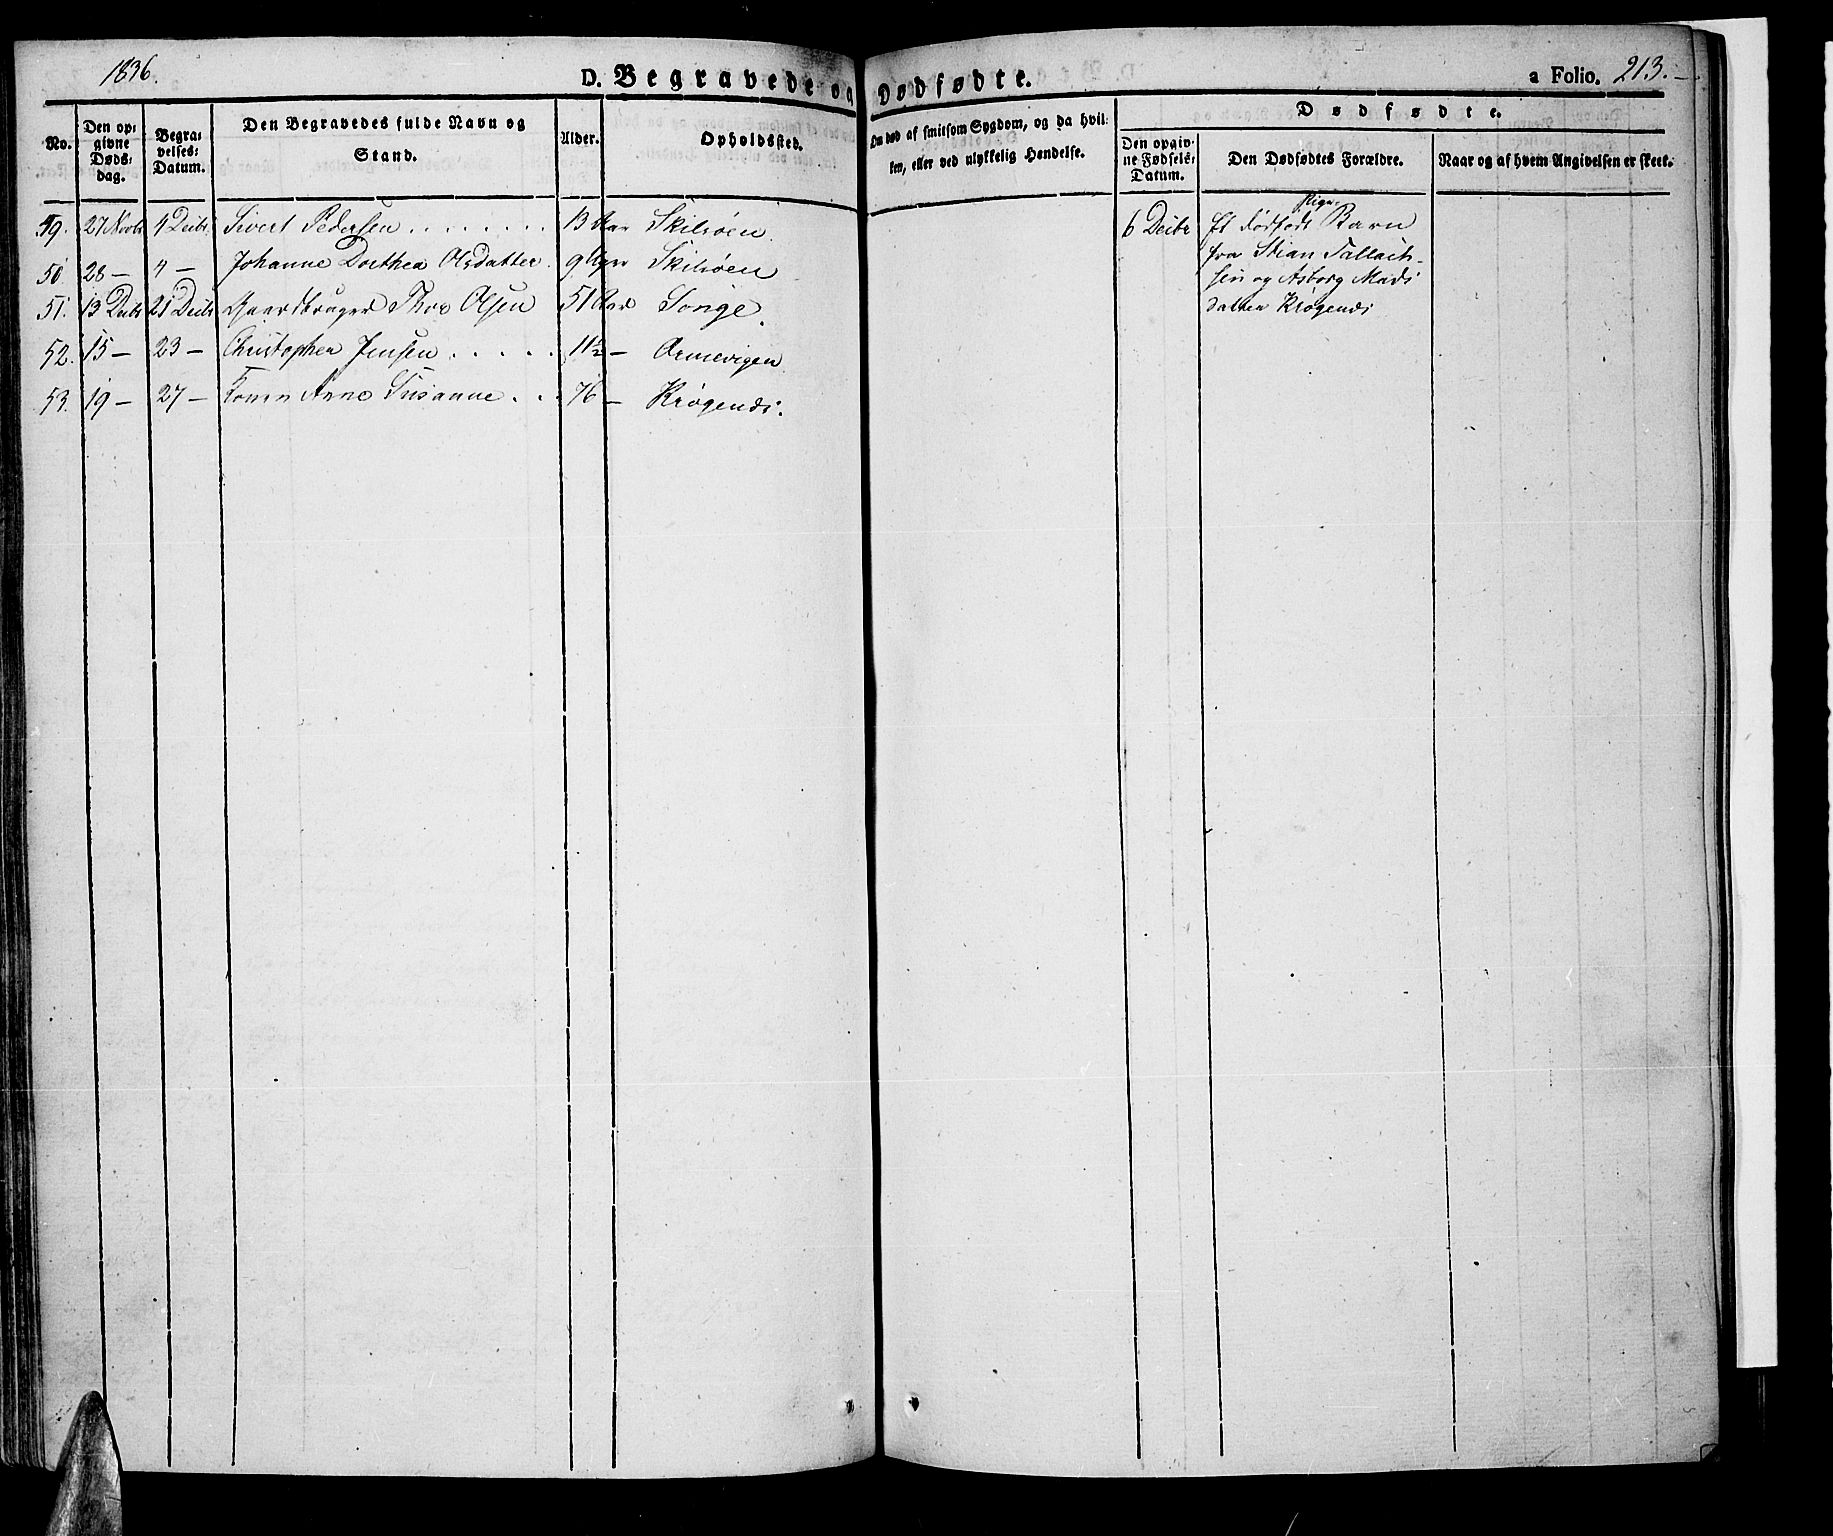 1836.
D. Begravede og Dødfødte.
a Folio. 213.
No.
Den op-
givne
Døds-
dag.
Begra-
velses-
Datum.
Den Begravedes fulde Navn og
Stand.
Alder.
Opholdssted.
Om død af smitsom Sygdom, og da hvil-
ken, eller ved ulykkelig Hendelse.
Dødfødte.
Den opgiv-
ne Fødsels-
Datum.
Den Dødfødtes Forældre.
Naar og af hvem Angivelsen er skeet.
49. 27 Novbr 4 Decbr Sivert Pedersen . . . . . . . . 13 Aar Skilsøen.
50 28 — 4 — Johanne Dorthea Olsdatter. 9 Skilsøen
51. 13 Decbr 21 Decbr Gaardbruger Thor Olsen 51 Aar Songe.
52. 15 — 23 — Christopher Jensen . . . . . 11½ — Ormevigen
53. 19 — 27 — Konen Anne Susanne . . . 76 — Krøgenes.
6 Decbr
Pige
Et dødfødt Barn
fra Stian Tallach-
sen og Asborg Mads
datter Krøgenes